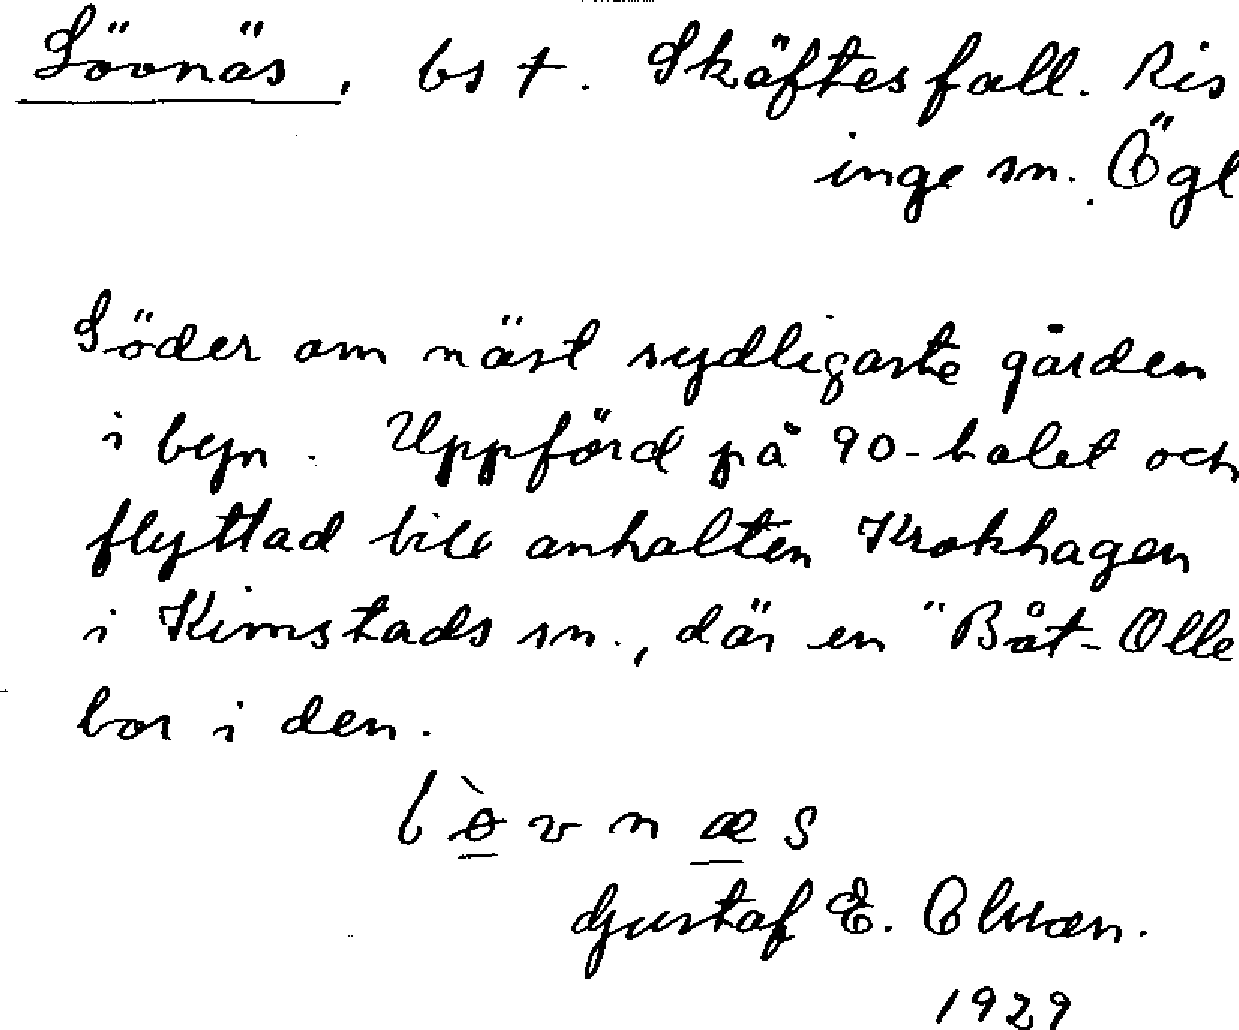 Lövnäs, bs †. Skäftesfall. Ris
inge sn. Ögl
Söder om näst sydligaste gården
i byn. Uppförd på 90-talet och
flyttad till anhalten Krokhagen
i Kimstads sn., där en "Båt-Olle
bor i den.
lø̀vnæs
Gustaf E. Olsson.
1929